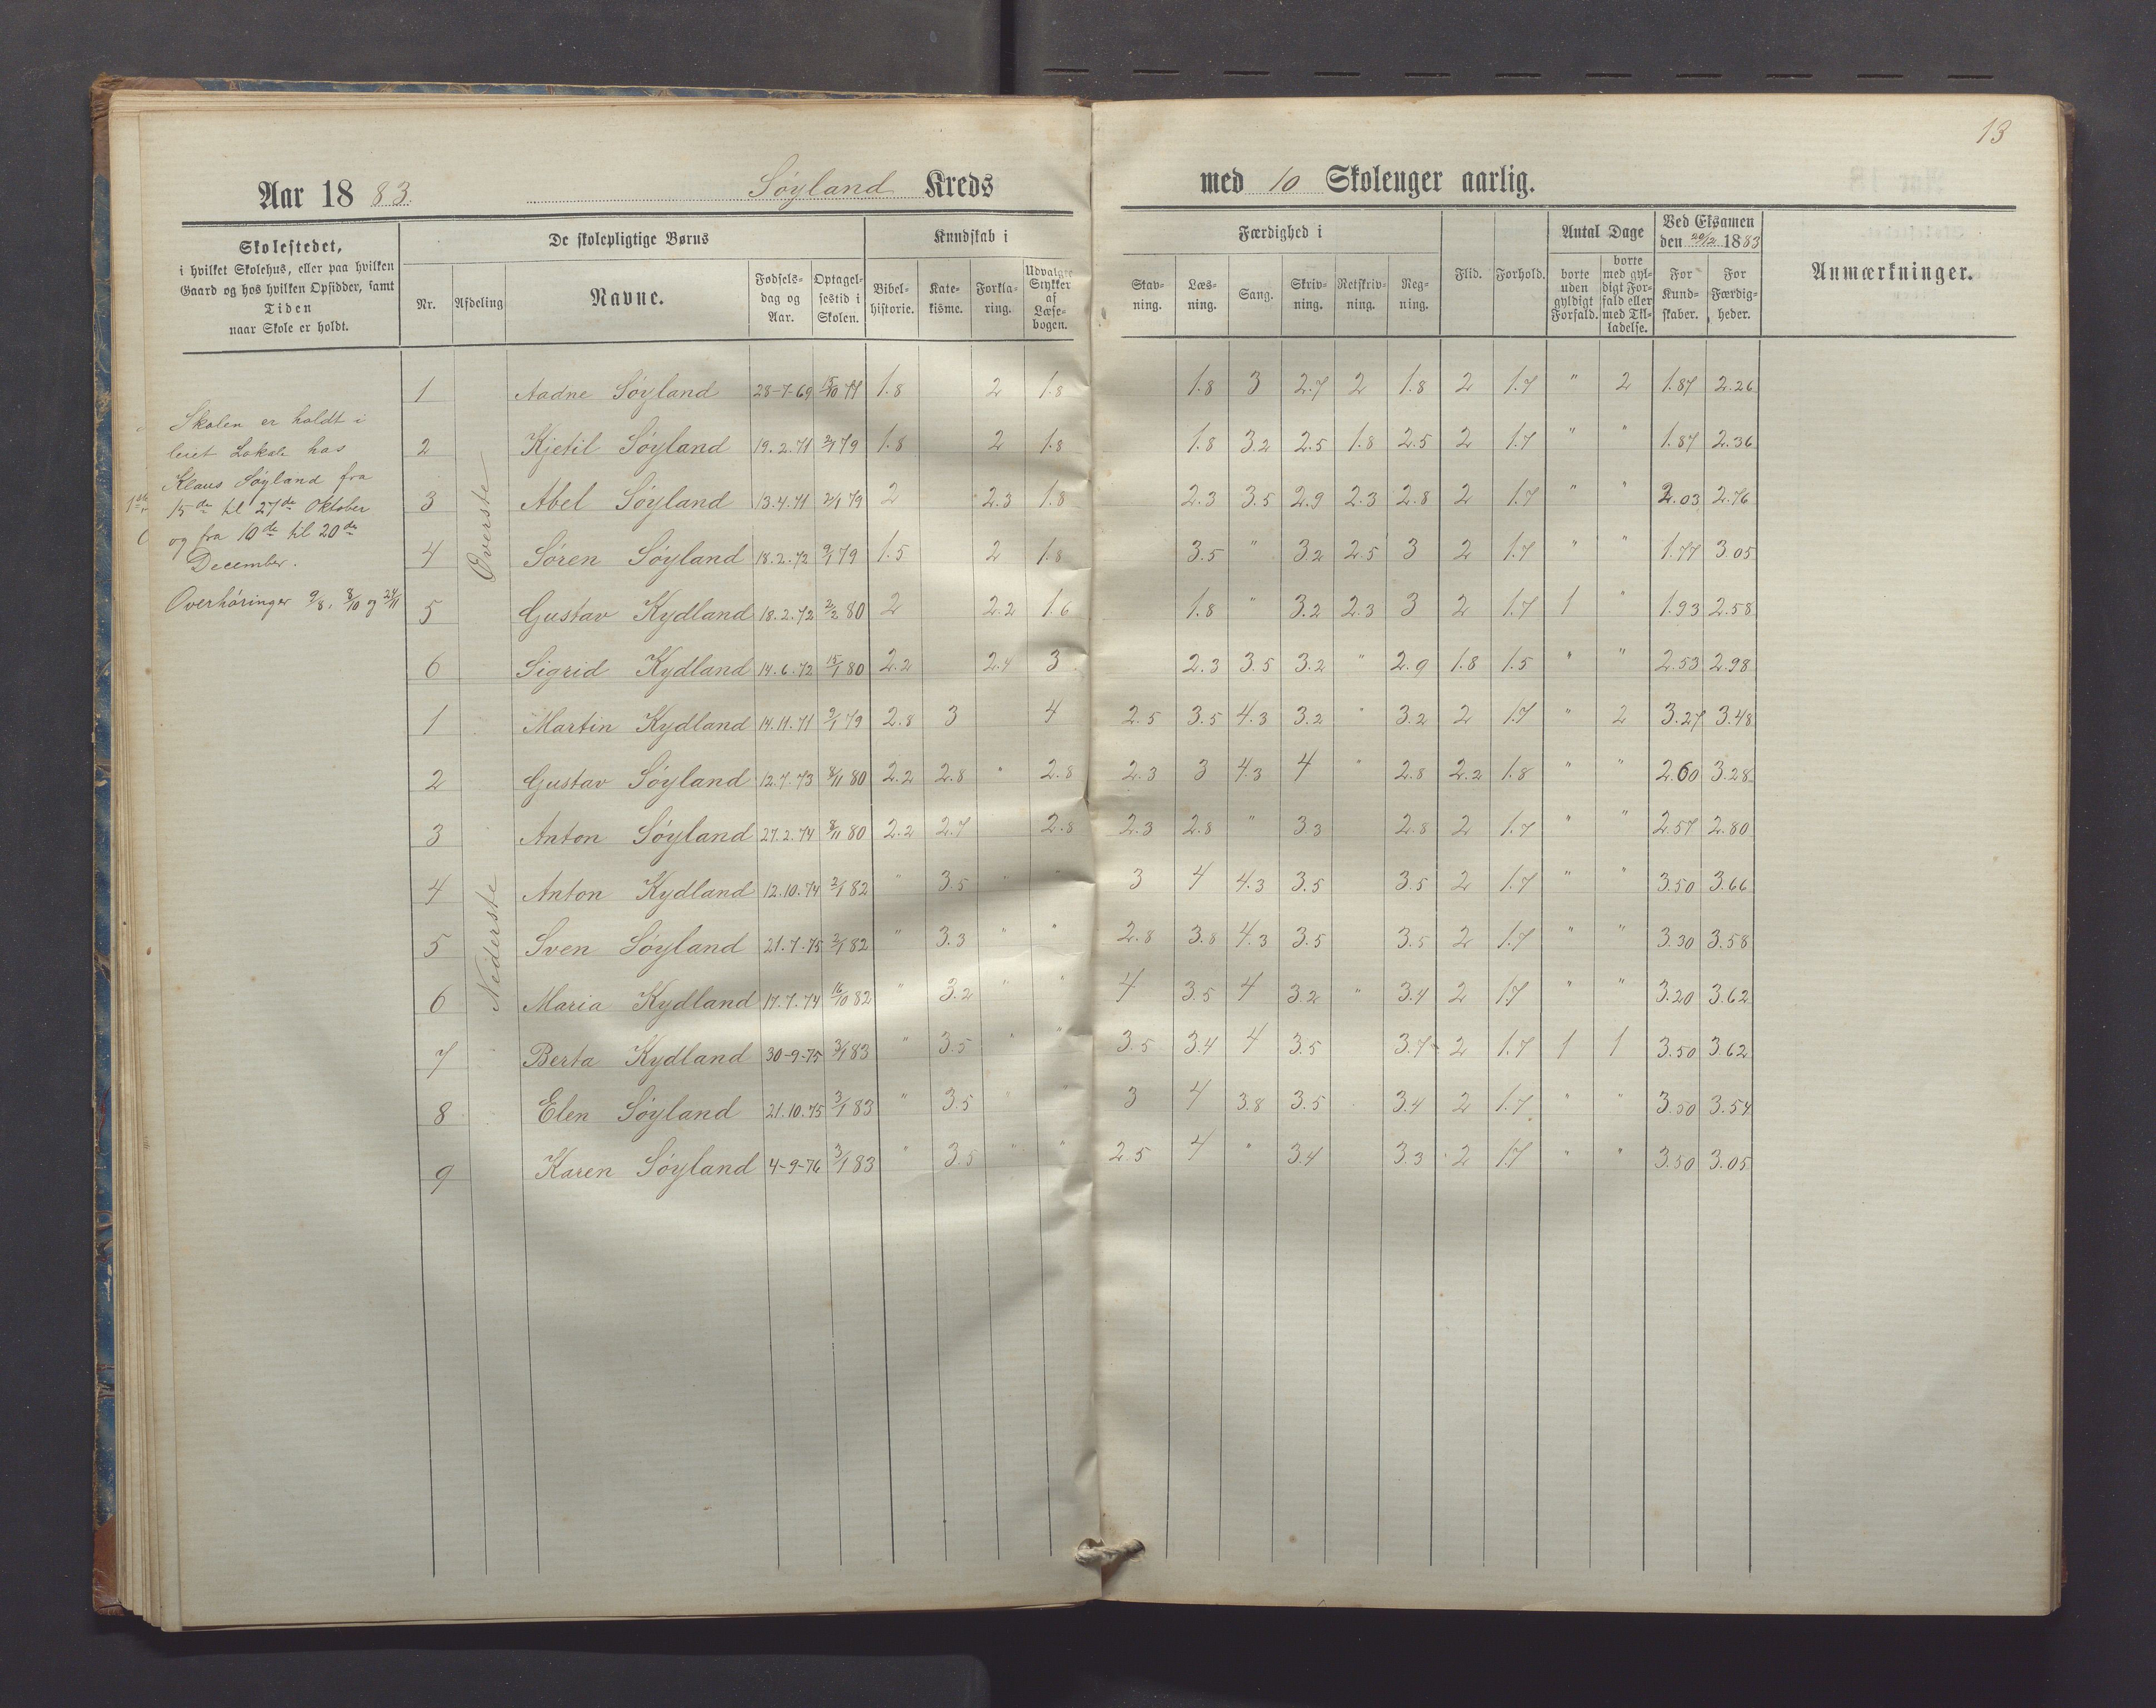 13
Aar 1883. Søyland Kreds med 10 Skoleuger aarlig.
Skolestedet,
i hvilket Skolehus, eller paa hvilken
Gaard og hos hvilken Opsidder, samt
Tiden
naar Skole er holdt.
De skolepligtige Børns
Nr. Afdeling Navne. Fødsels-dag og Aar. Optagel-sestid i Skolen.
Kundskab i
Bibel-historie. Kate-kisme. Forkla-ring. Udvalgte Stykker af Læse-bogen.
Færdighed i
Stav-ning. Læs-ning. Sang. Skriv-ning. Retskriv-ning. Reg-ning.
Flid. Forhold.
Antal Dage
borte uden gyldigt Forfald. borte med gyl-digt For-fald eller med Til-ladelse.
Ved Eksamen
den 20/12 1883
For Kund-skaber. For Færdig-heder.
Anmærkninger.
Skolen er holdt i
leiet Lokale hos
Klaus Søyland fra
15de til 27de Oktober
og fra 10de til 20de
December.
Overhøringer 9/8, 8/10 og 24/11
Øverste
1 Aadne Søyland 28-7-69 15/10 77 1.8 2 1.8 1.8 3 2.7 2 1.8 2 1.7 " 2 1.87 2.26
2 Kjetil Søyland 19.2.71 2/1 79 1.8 2 1.8 1.8 3.2 2.5 1.8 2.5 2 1.7 " " 1.87 2.36
3 Abel Søyland 13.4.71 2/1 79 2 2.3 1.8 2.3 3.5 2.9 2.3 2.8 2 1.7 " " 2.03 2.76
4 Søren Søyland 18.2.72 9/1 79 1.5 2 1.8 3.5 " 3.2 2.5 3 2 1.7 " " 1.77 3.05
5 Gustav Kydland 18.2.72 2/2 80 2 2.2 1.6 1.8 " 3.2 2.3 3 2 1.7 1 " 1.93 2.58
6 Sigrid Kydland 14.6.72 15/1 80 2.2 2.4 3 2.3 3.5 3.2 " 2.9 1.8 1.5 " " 2.53 2.98
Nederste
1 Martin Kydland 14.11.71 9/1 79 2.8 3 4 2.5 3.5 4.3 3.2 " 3.2 2 1.7 " 2 3.27 3.48
2 Gustav Søyland 12.7.73 8/11 80 2.2 2.8 " 2.8 2.3 3 4.3 4 " 2.8 2.2 1.8 " " 2.60 3.28
3 Anton Søyland 27.2.74 8/11 80 2.2 2.7 2.8 2.3 2.8 " 3.3 2.8 2 1.7 " " 2.57 2.80
4 Anton Kydland 12.10.74 2/1 82 " 3.5 " " 3 4 4.3 3.5 3.5 2 1.7 " " 3.50 3.66
5 Sven Søyland 21.7.75 2/1 82 " 3.3 " " 2.8 3.8 4.3 3.5 3.5 2 1.7 " " 3.30 3.58
6 Maria Kydland 17.7.74 16/10 82 " 3.2 " " 4 3.5 4 3.2 " 3.4 2 1.7 " " 3.20 3.62
7 Berta Kydland 30-9-75 3/1 83 " 3.5 " " 3.5 3.4 4 3.5 3.7 2 1.7 1 1 3.50 3.62
8 Elen Søyland 21.10.75 3/1 83 " 3.5 " " 3 4 3.8 3.5 3.4 2 1.7 " " 3.50 3.54
9 Karen Søyland 4-9-76 3/1 83 " 3.5 " " 2.5 4 " 3.4 3.3 2 1.7 " " 3.50 3.05